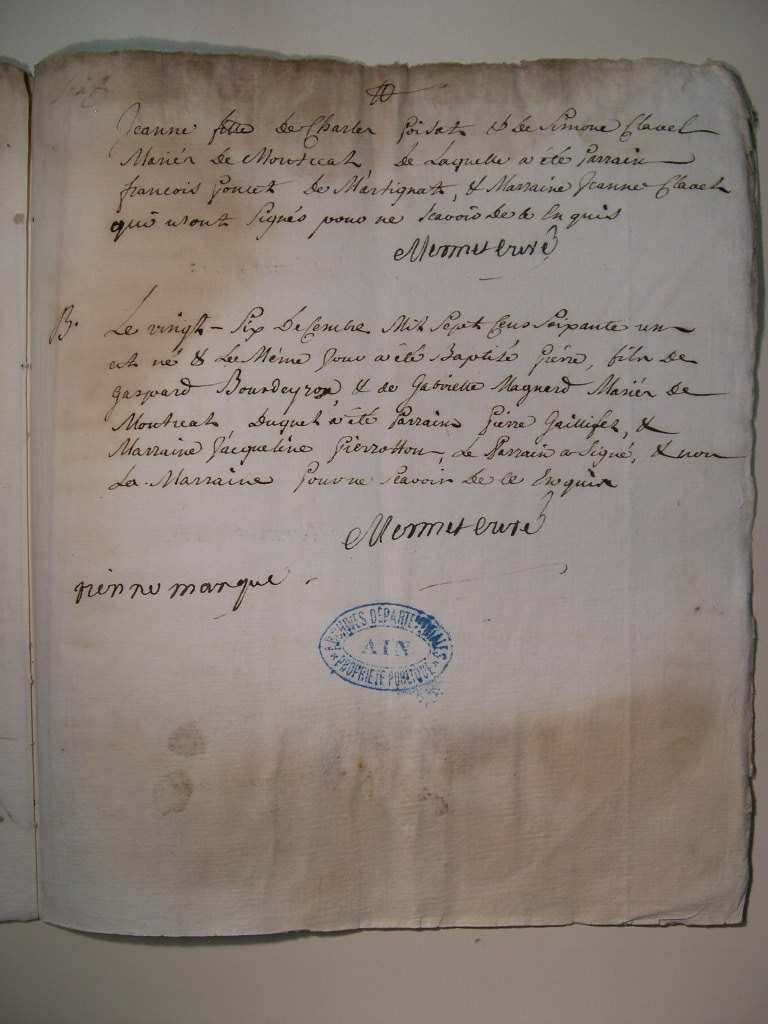 10
Jeanne fille de Charles Poisat & de Simone Clavel
Mariés de Montreal de Laquelle a été Parrain
francois Poncet de Martignat, & Marraine Jeanne Clavel
qui n'ont signés pour ne scavoir de ce Enquis
Mermet curé
B. Le vingt-six decembre Mil Sept Cens Soixante un
est né & Le Même Jour a été Baptisé Pierre, fils de
gaspard Bourdeyron, & de Gabrielle Magnard Mariés de
Montreal, Duquel a été Parrain Pierre Gaillifet, &
Marraine Jacqueline Pierrotton, Le Parrain a Signé, & non
La Marraine Pour ne scavoir de ce Enquise
Mermet curé
manque
ARCHIVES DÉPARTEMENTALES
AIN
PROPRIÉTÉ PUBLIQUE